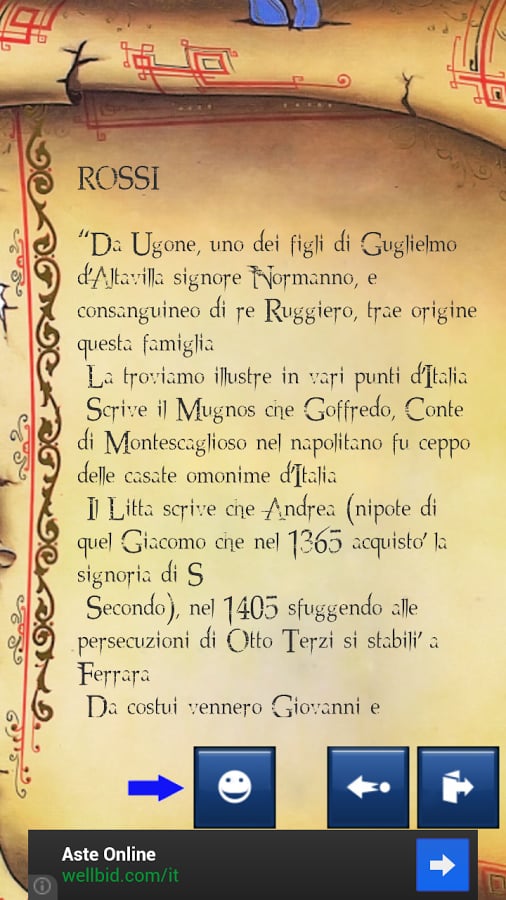 ROSSI
“Da Ugone, uno dei figli di Guglielmo
d'Altavilla signore Normanno, e
consanguineo di re Ruggiero, trae origine
questa famiglia
La troviamo illustre in vari punti d'Italia
Scrive il Mugnos che Goffredo, Conte
di Montescaglioso nel napolitano fu ceppo
delle casate omonime d'Italia
Il Litta scrive che Andrea (nipote di
quel Giacomo che nel 1365 acquisto' la
signoria di S
Secondo), nel 1405 sfuggendo alle
persecuzioni di Otto Terzi si stabili' a
Ferrara
Da costui vennero Giovanni e
Aste Online
wellbid.com/it